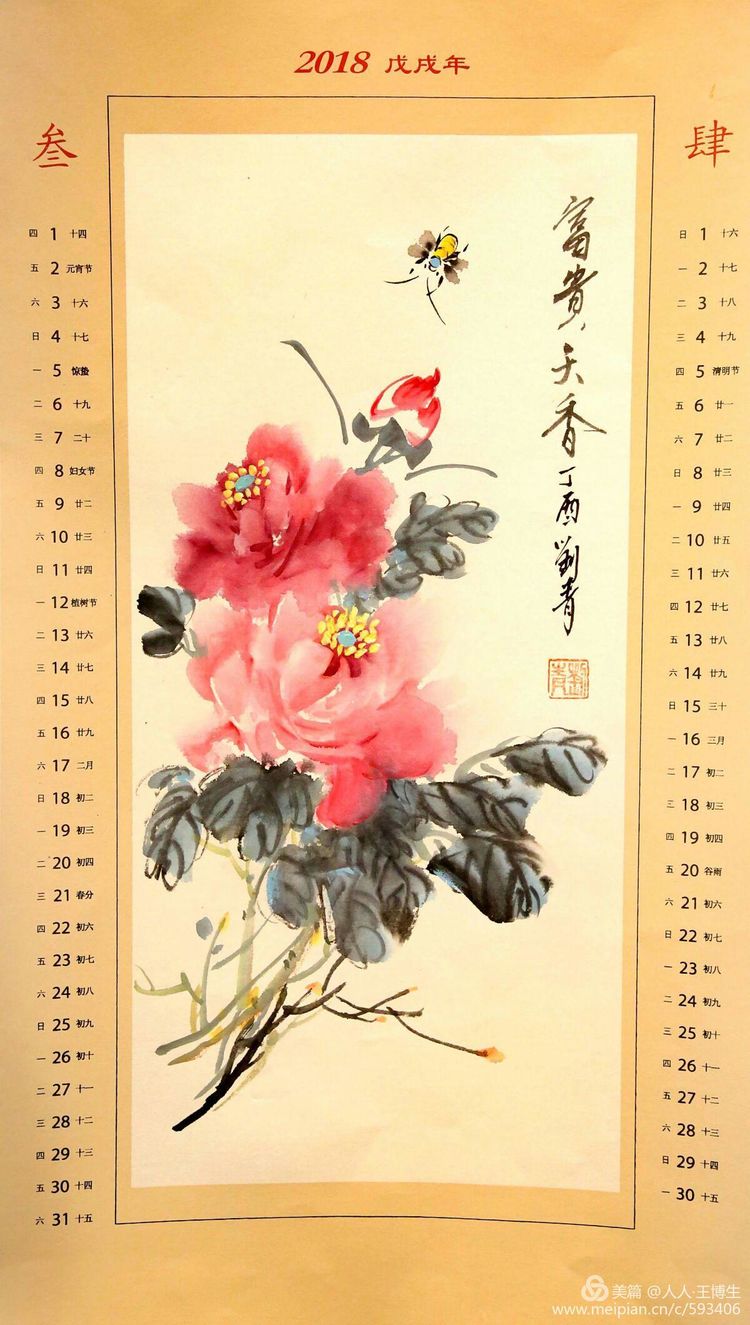 2018 戊戌年
叁
四 1 十四
五 2 元宵节
六 3 十六
日 4 十七
一 5 惊蛰
二 6 十九
三 7 二十
四 8 妇女节
五 9 廿二
六 10 廿三
日 11 廿四
一 12 植树节
二 13 廿六
三 14 廿七
四 15 廿八
五 16 廿九
六 17 二月
日 18 初二
一 19 初三
二 20 初四
三 21 春分
四 22 初六
五 23 初七
六 24 初八
日 25 初九
一 26 初十
二 27 十一
三 28 十二
四 29 十三
五 30 十四
六 31 十五
富贵天香
丁酉劉青
劉青
肆
日 1 十六
一 2 十七
二 3 十八
三 4 十九
四 5 清明节
五 6 廿一
六 7 廿二
日 8 廿三
一 9 廿四
二 10 廿五
三 11 廿六
四 12 廿七
五 13 廿八
六 14 廿九
日 15 三十
一 16 三月
二 17 初二
三 18 初三
四 19 初四
五 20 谷雨
六 21 初六
日 22 初七
一 23 初八
二 24 初九
三 25 初十
四 26 十一
五 27 十二
六 28 十三
日 29 十四
一 30 十五
美篇 @人人·王博生
www.meipian.cn/c/593406